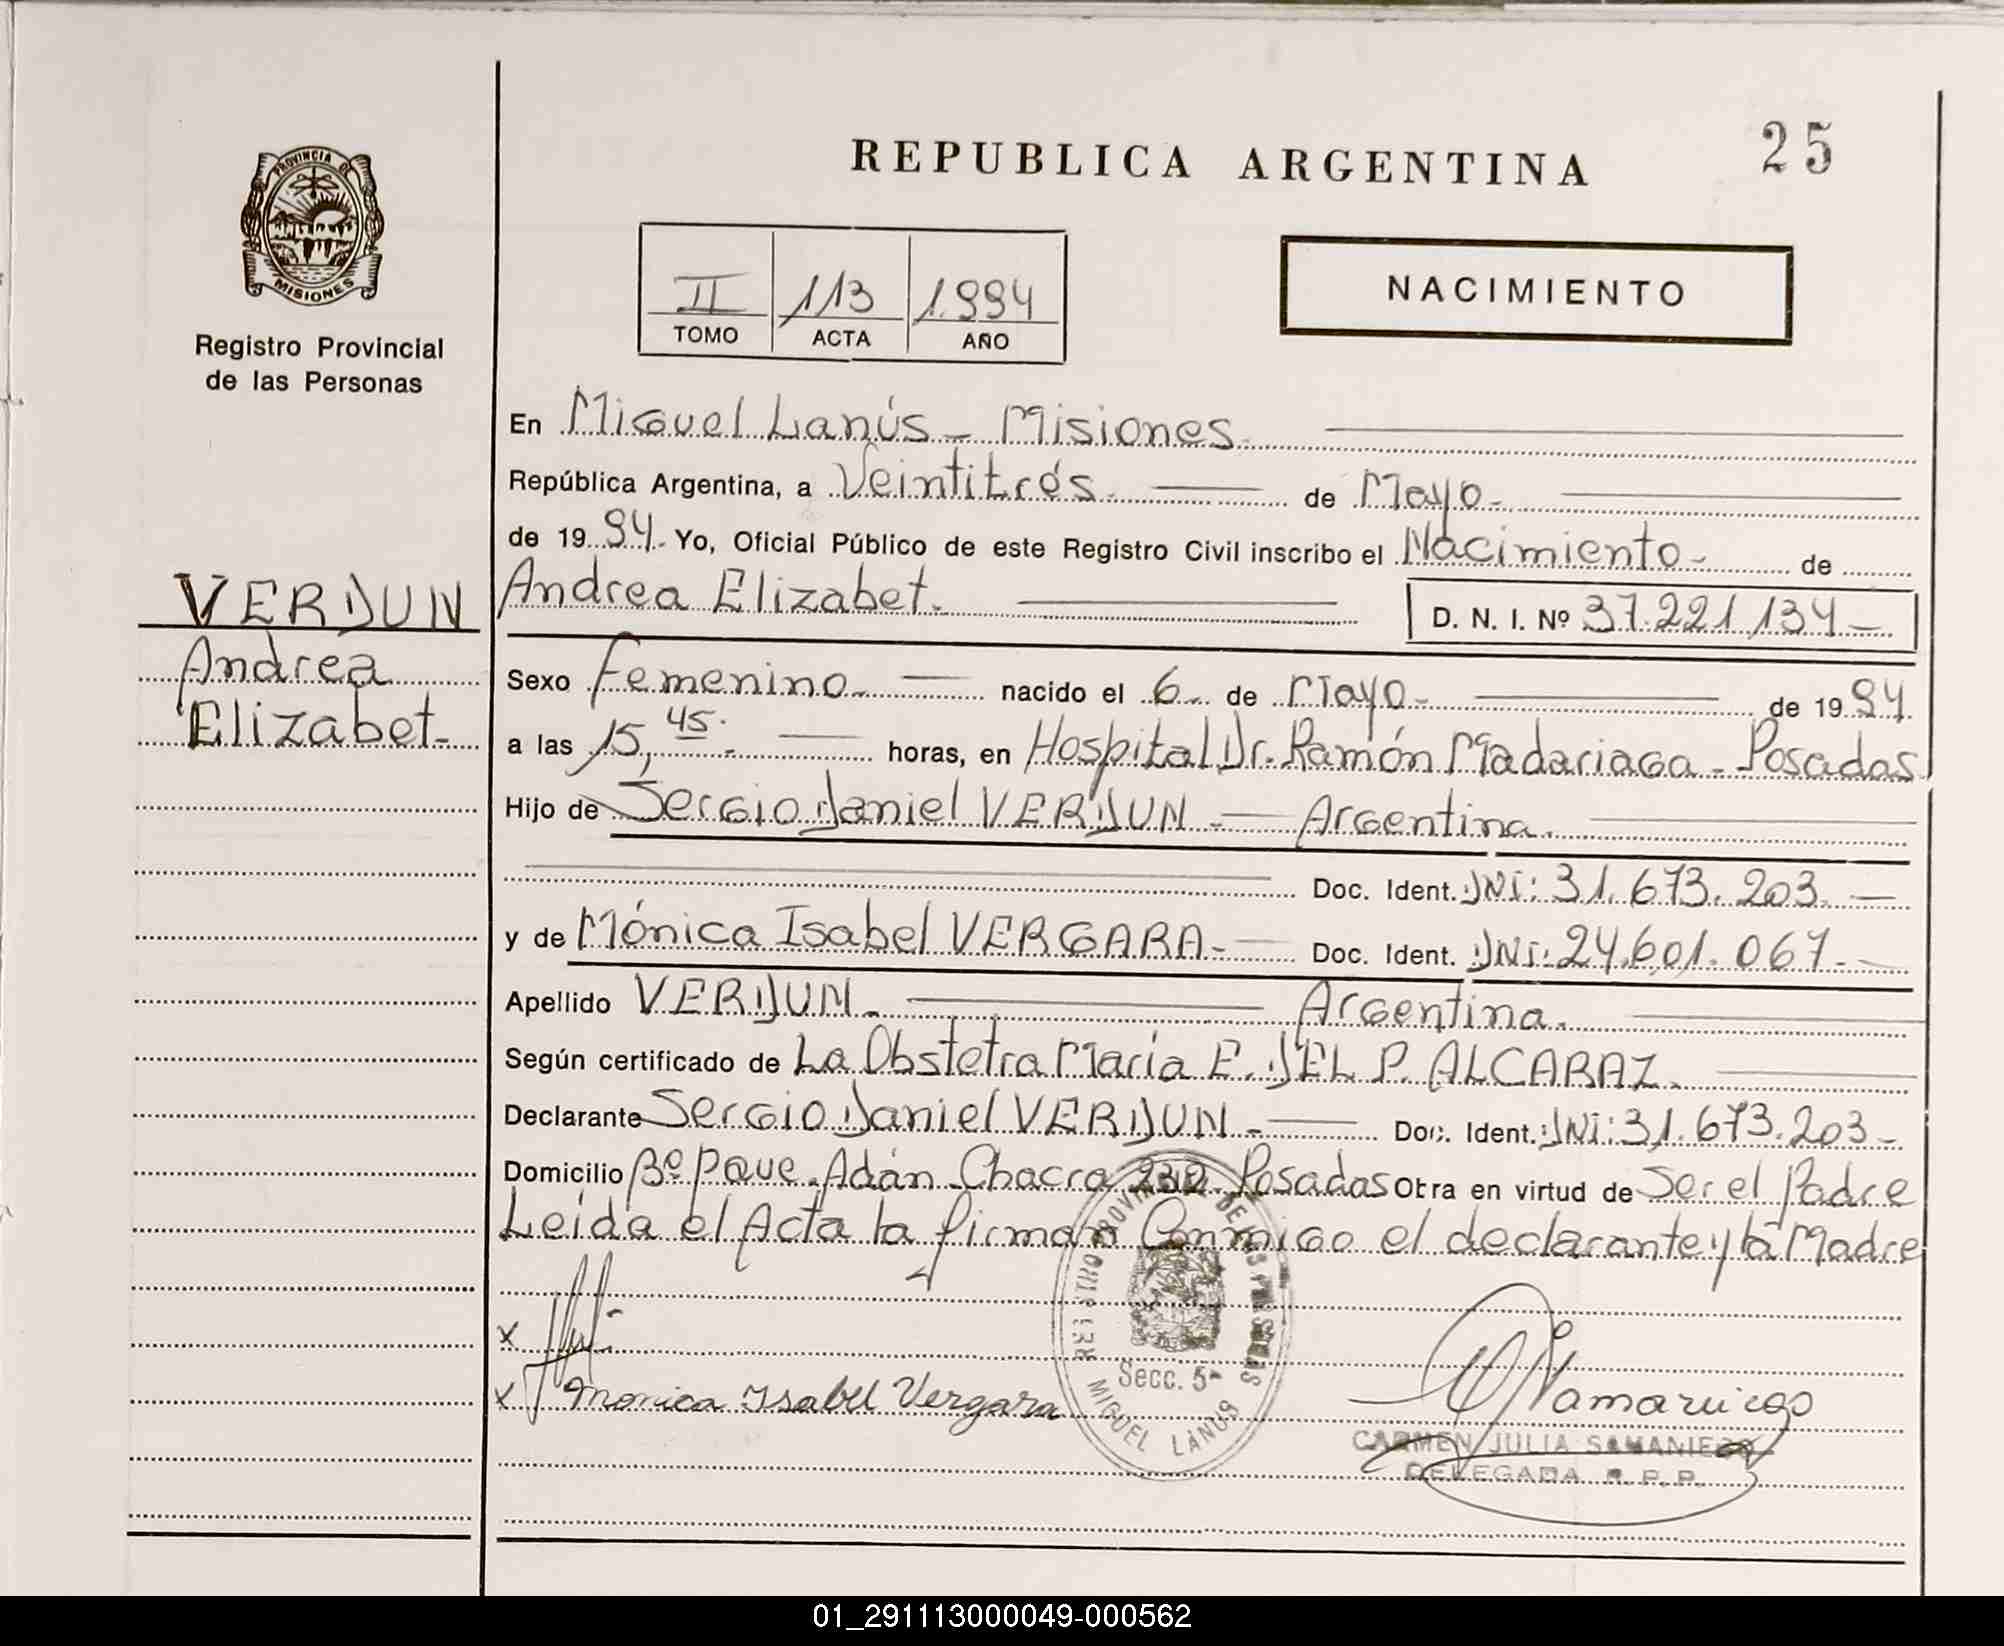 REPUBLICA ARGENTINA
25
PROVINCIA DE
MISIONES
Registro Provincial
de las Personas
II 113 1.994
TOMO ACTA AÑO
NACIMIENTO
En Miguel Lanús - Misiones
República Argentina, a Veintitrés de Mayo
de 1994. Yo, Oficial Público de este Registro Civil inscribo el Nacimiento de
VERDUN
Andrea
Elizabet
Andrea Elizabet. D. N. I. Nº 37.221.134
Sexo Femenino nacido el 6 de Mayo de 1994
a las 15,45 horas, en Hospital Dr. Ramón Madariaga - Posadas
Hijo de Sergio Daniel VERDUN - Argentina.
Doc. Ident. DNI: 31.673.203.
y de Mónica Isabel VERGARA - Doc. Ident. DNI: 24.601.067
Apellido VERDUN. Argentina.
Según certificado de La Obstetra María E. DEL P. ALCARAZ.
Declarante Sergio Daniel VERDUN - Doc. Ident. DNI: 31.673.203
Domicilio Bº Pque. Adán Chacra Posadas Otra en virtud de Ser el Padre
Leída el Acta la firman Conmigo el declarante y la Madre
REGISTRO PROVINCIAL DE LAS PERSONAS
Secc. 5ª
MIGUEL LANUS
x
x Monica Isabel Vergara
CARMEN JULIA SAMANIEGO
DELEGADA R. P. P.
01_291113000049-000562